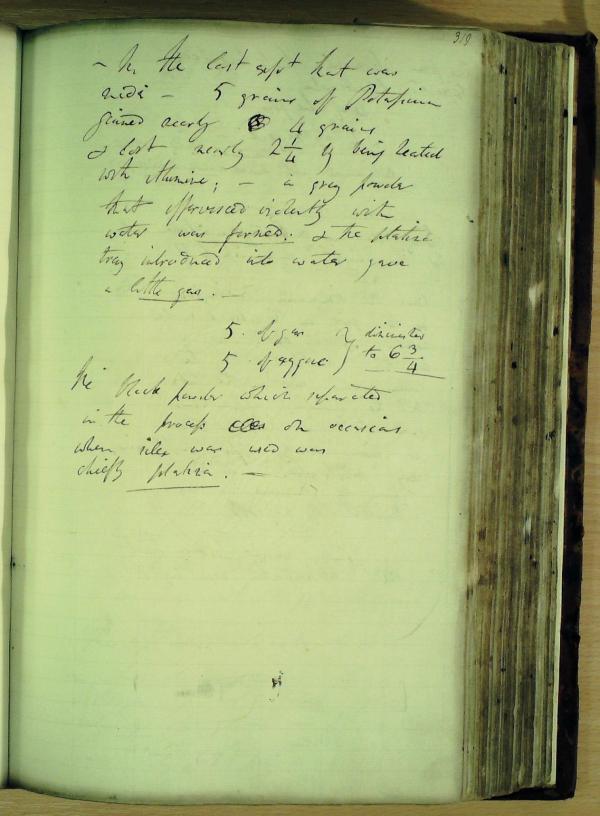 319
– In the last expt that was
made – 5 grains of Potassium
gained nearly 4 grains
& lost nearly 2 1/4 by being heated
with Alumine; – a grey powder
that effervesced violently with
water was formed: & the platina
tray introduced into water gave
a little gas. —
5. of gas } diminished
5 of oxygene } to 6 3/4
The black powder which separated
in the process on occasions
when silex was used was
chiefly platina. —